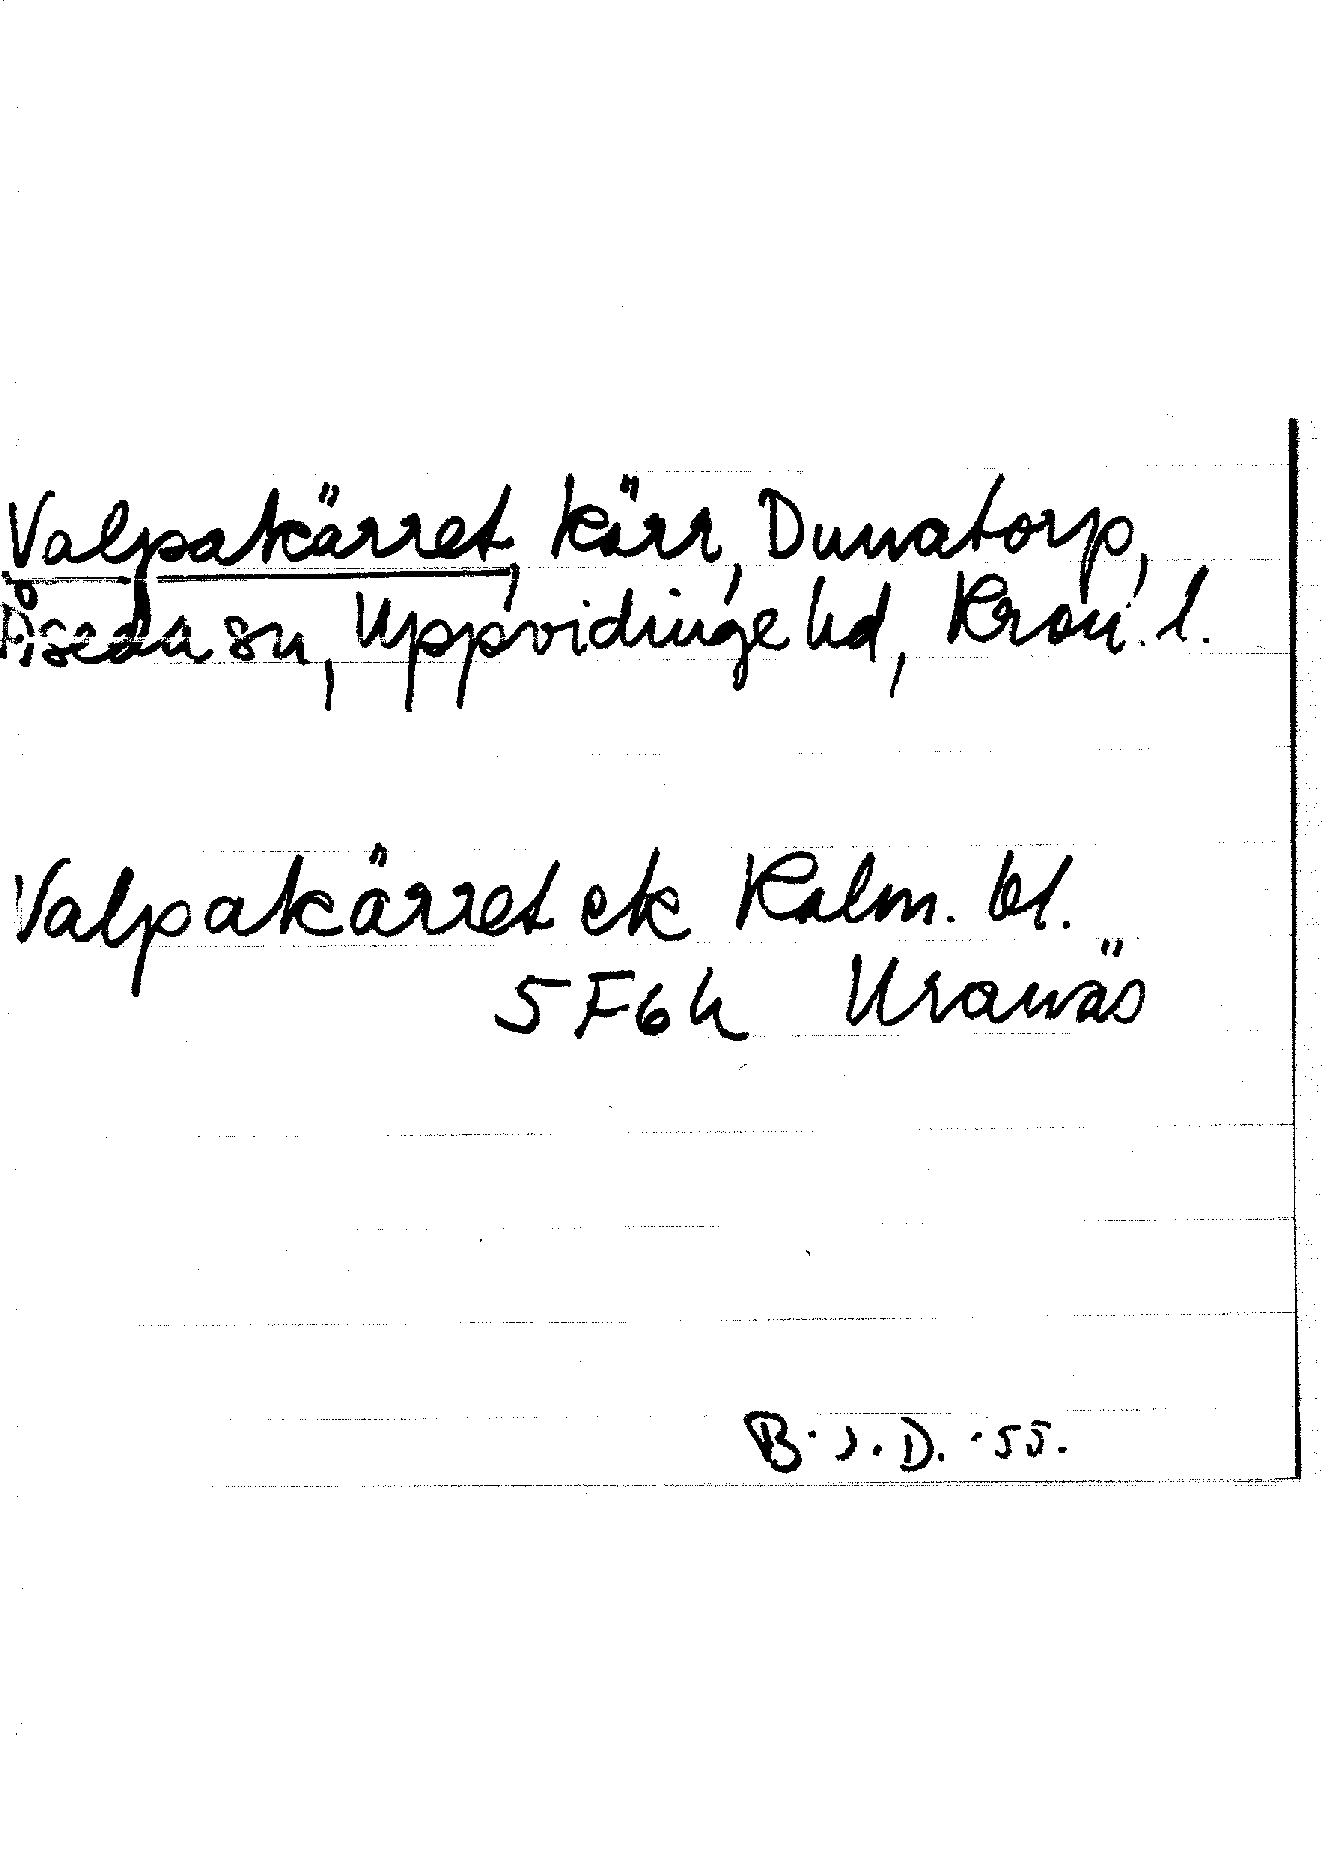 Valpakärret, kärr, Dunatorp,
Åseda sn, Uppvidinge hd, Kron. l.
Valpakärret ek Kalm. bl.
5F6h Uranäs
B. J. D. -55.